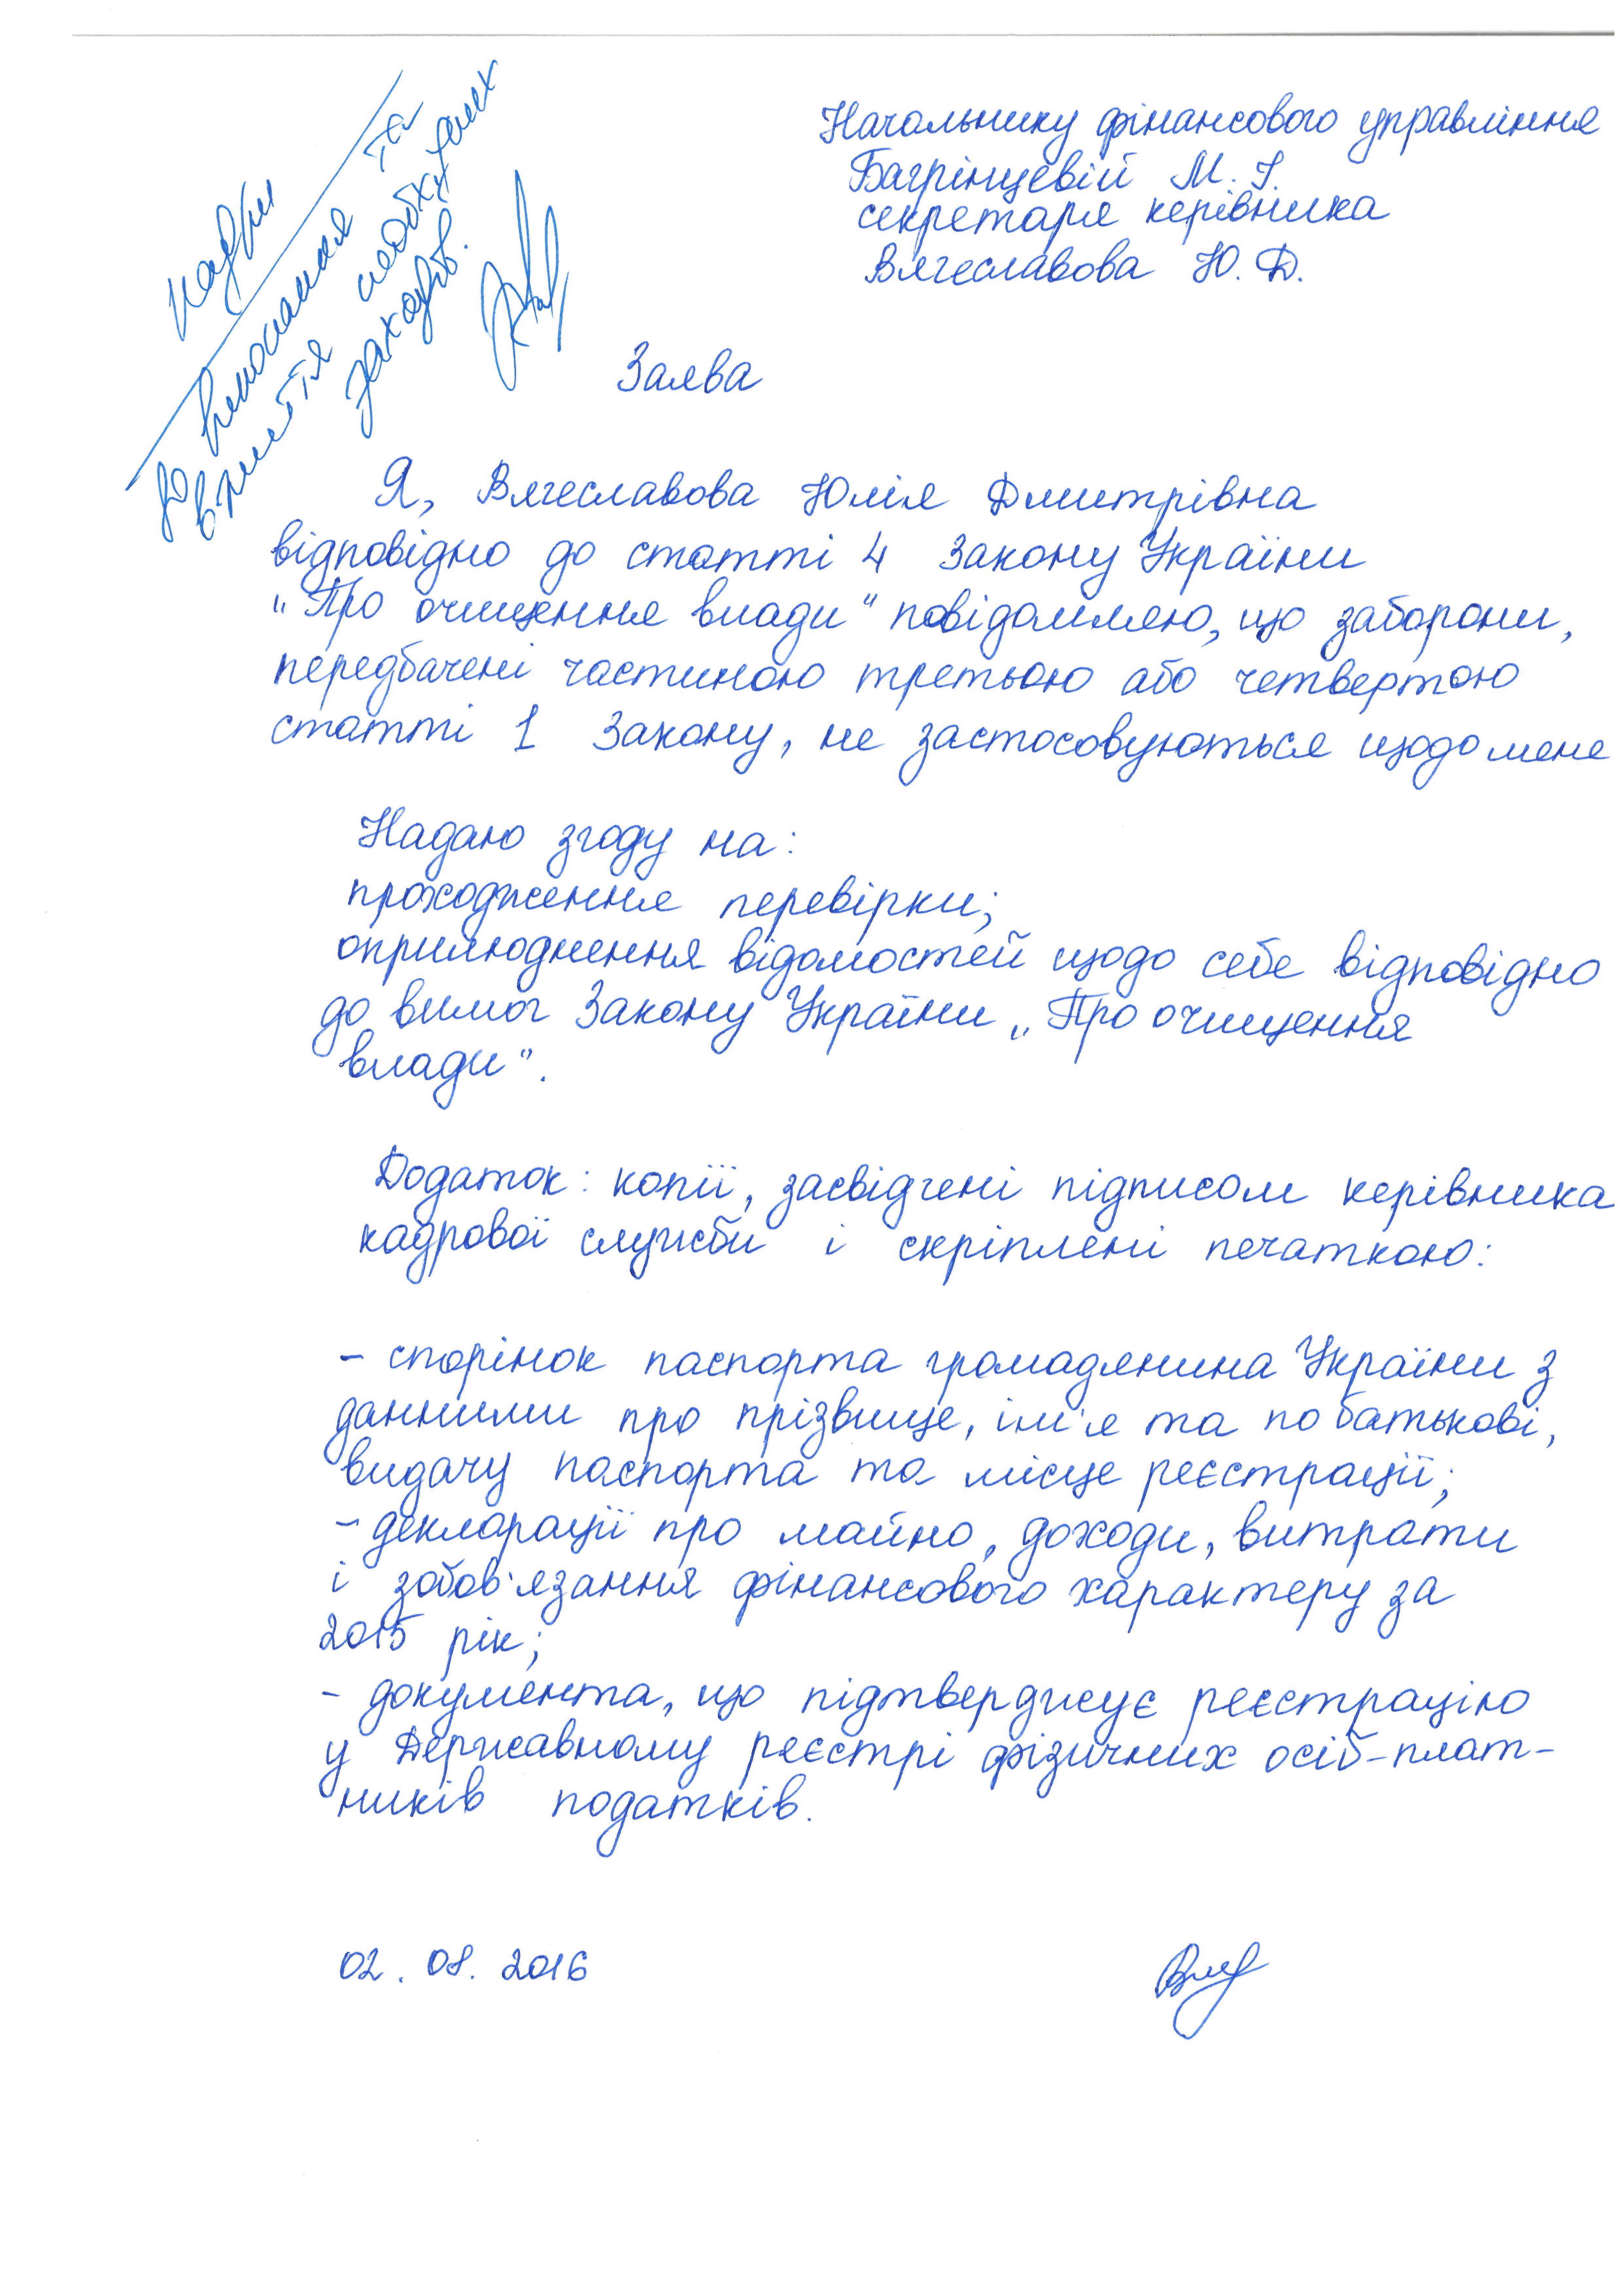 Начальнику фінансового управління
Багрінцевій М. І.
секретаря керівника
Вячеславова Ю. Д.
кадри
До виконання та
вжиття необхідних
заходів.
Заява
Я, Вячеславова Юлія Дмитрівна
відповідно до статті 4 Закону України
"Про очищення влади" повідомляю, що заборони,
передбачені частиною третьою або четвертою
статті 1 Закону, не застосовуються щодо мене
Надаю згоду на:
проходження перевірки;
оприлюднення відомостей щодо себе відповідно
до вимог Закону України „Про очищення
влади".
Додаток: копії, засвідчені підписом керівника
кадрової служби і скріплені печаткою:
- сторінок паспорта громадянина України з
данними про прізвище, ім'я та по батькові,
видачу паспорта та місце реєстрації;
- декларації про майно, доходи, витрати
і зобов'язання фінансового характеру за
2015 рік;
- документа, що підтверджує реєстрацію
у Державному реєстрі фізичних осіб-плат-
ників податків.
02. 08. 2016